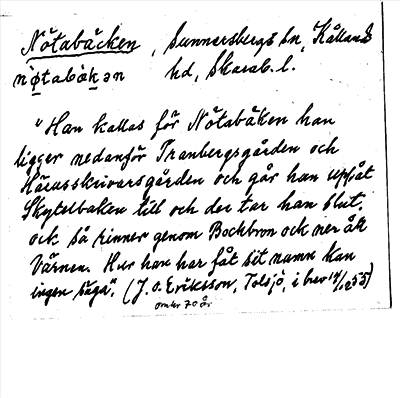 Nötabäcken, Sunnersbergs sn, Kållands
nø̀tabäkən hd, Skarab. l.
"Han kallas för Nötabäken han
ligger nedanför Tranbergsgården och
Häradsskrivarsgården och går han uppåt
Skytelbaken till och der tar han slut.
ock så rinner genom Bockbron ock ner åt
Värnen. Hur han har fåt sit namn kan
ingen säga". (J. O. Eriksson, Tolsjö, i brev 14/12 55)
omkr 70 år